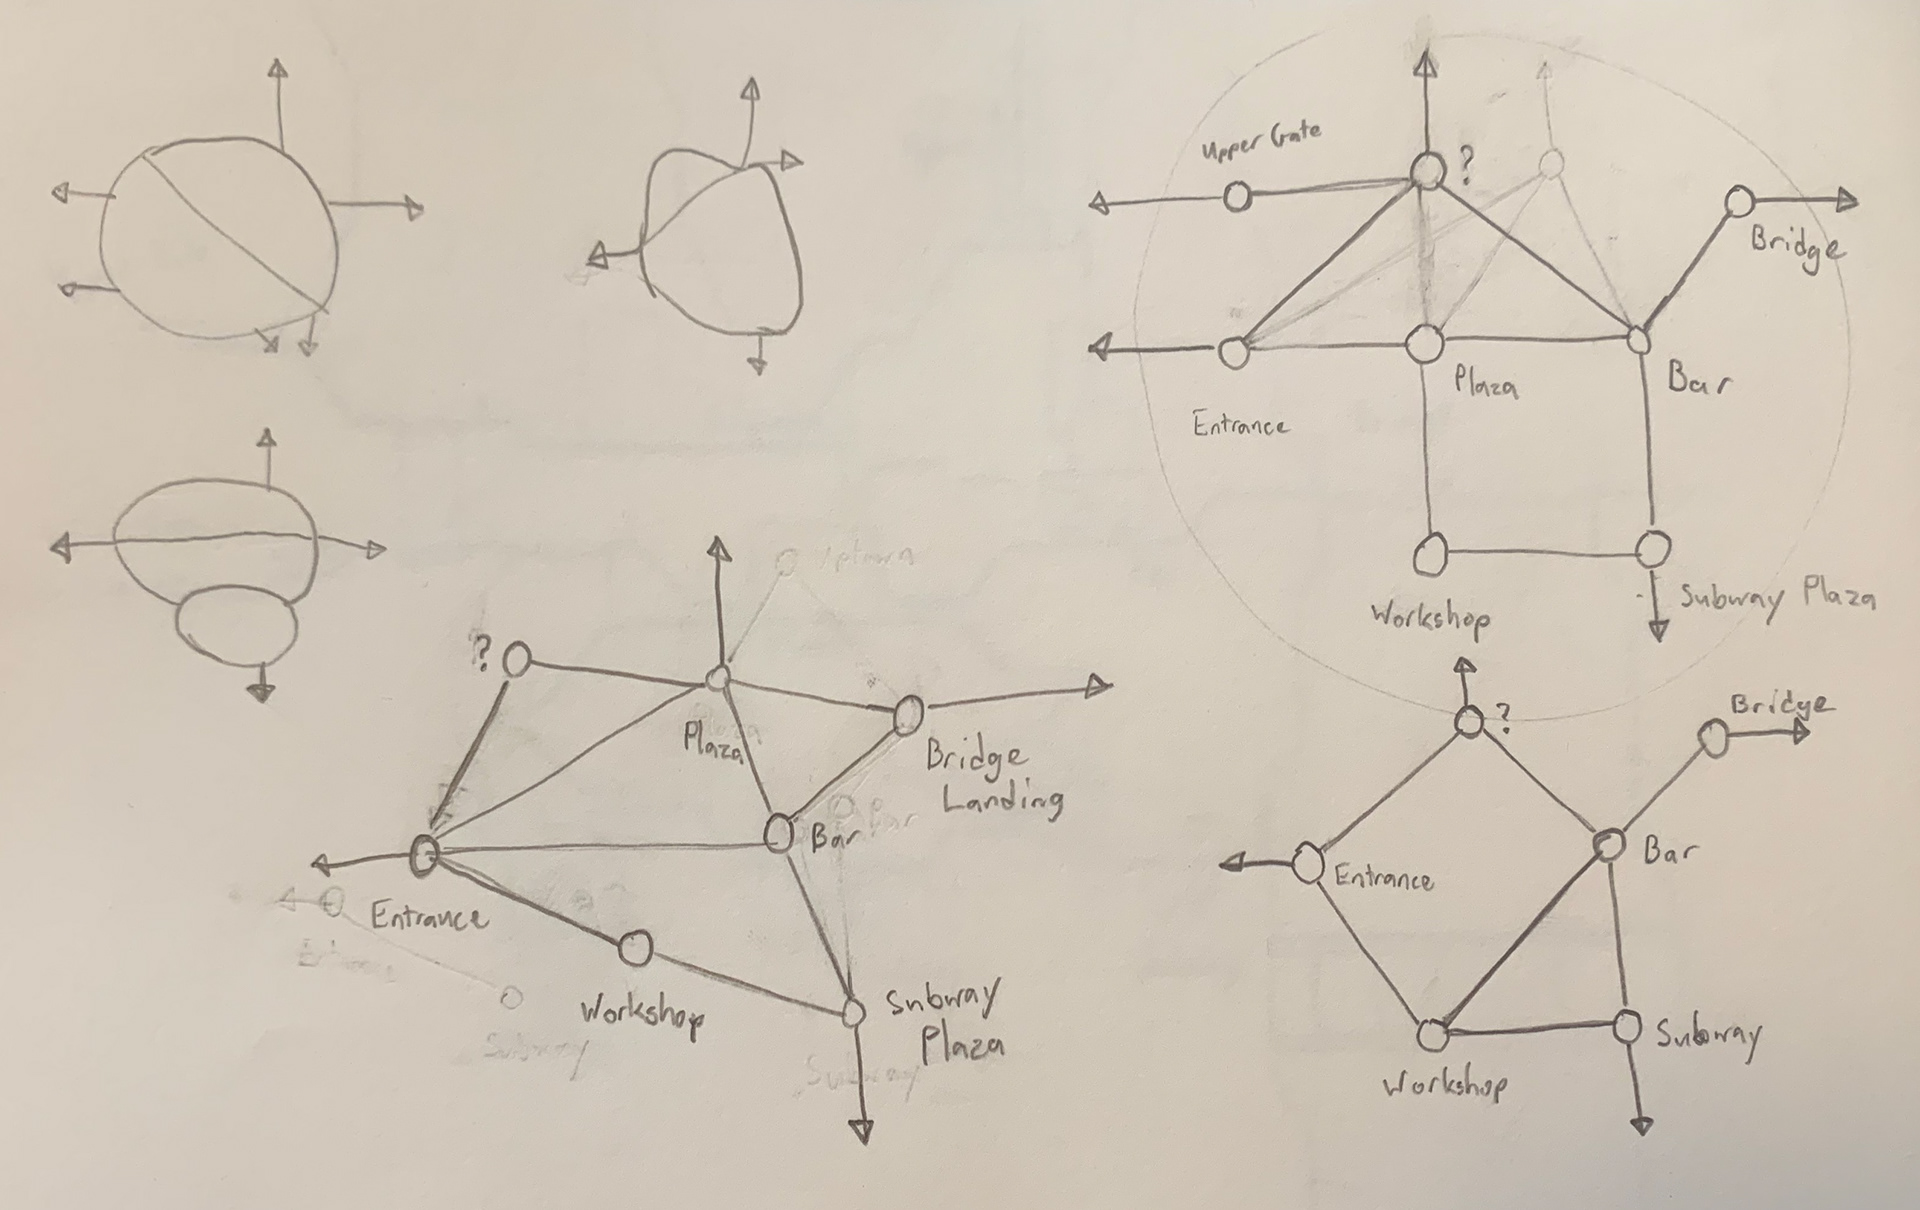 Upper Gate
?
Bridge
Plaza
Bar
Entrance
Workshop
Subway Plaza
?
Plaza
Bridge
Landing
Bar
Entrance
Workshop
Subway
Plaza
Subway
Subway
Bar
?
Bridge
Bar
Entrance
Subway
Workshop